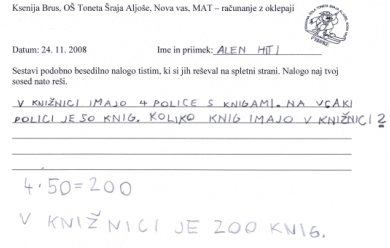 Ksenija Brus, OŠ Toneta Šraja Aljoše, Nova vas, MAT – računanje z oklepaji
Datum: 24. 11. 2008
Ime in priimek: ALEN HITI
Sestavi podobno besedilno nalogo tistim, ki si jih reševal na spletni strani. Nalogo naj tvoj
sosed nato reši.
V KNIŽNICI IMAJO 4 POLICE S KNIGAMI. NA VSAKI
POLICI JE 50 KNIG. KOLIKO KNIG IMAJO V KNIŽNICI?
4·50=200
V KNIŽNICI JE 200 KNIG.